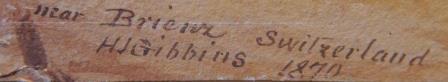 near Brienz Switzerland
HJGibbins 1870